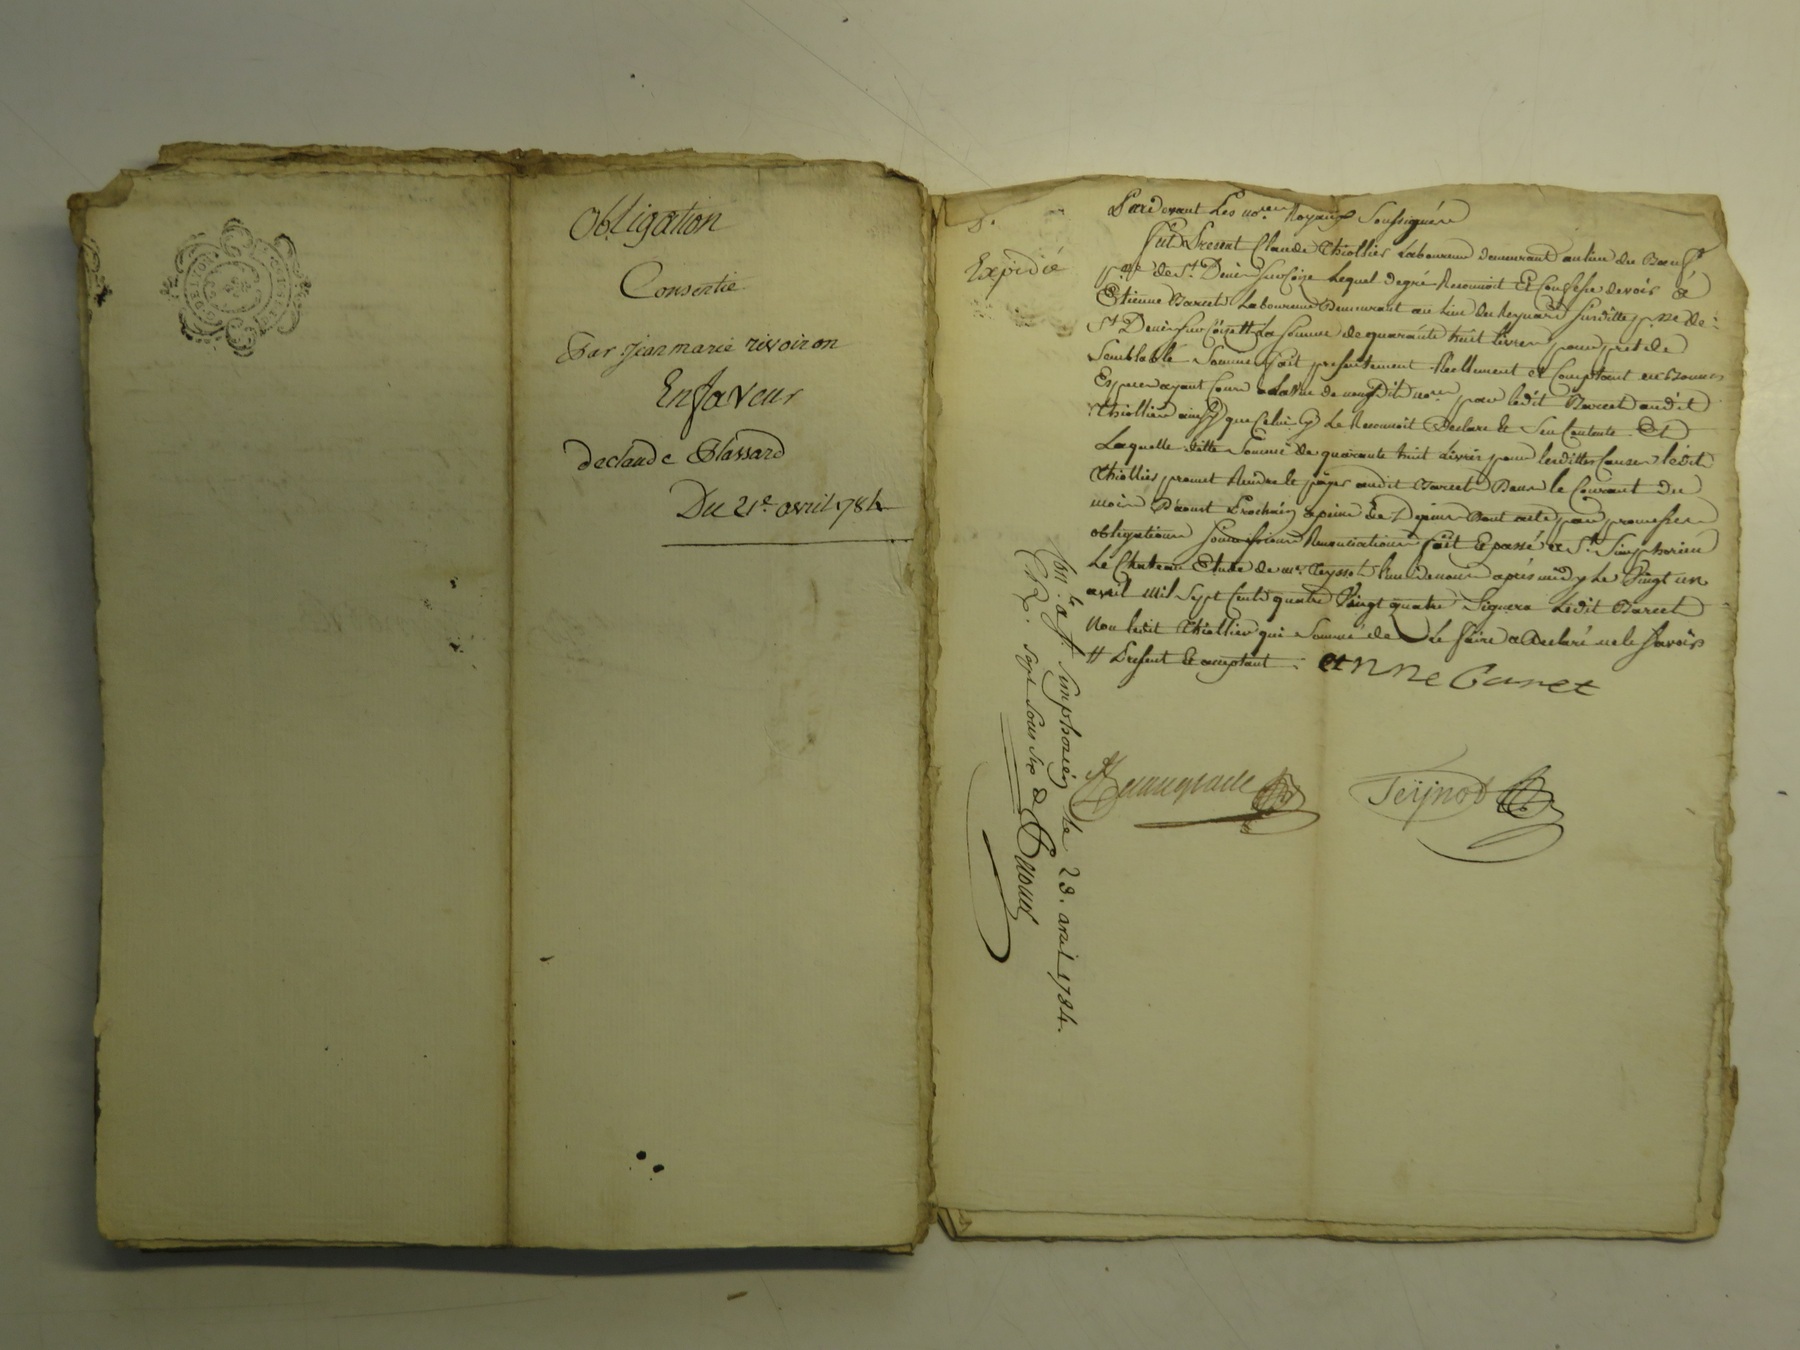 Obligation
Consentie
Par Jean marie rivoiron
En faveur
de claude Plassard
Du 21e. avril 1784
Expédié
Pardevant Les nores. Royaux Soussignés
fut Présent Claude Thiollier Laboureur demeurant au lieu du
psse de St. Denis sur Coize Lequel de gré Reconnoit Et Confesse devoir à
Etienne Barcet Laboureur Demeurant au Lieu du Reynard susditte psse de
St Denis sur Coize # La somme de quarante huit livres pour pret de
Semblable Somme fait presentement Reellement et Comptant en Bonnes
Especes ayant Cours a La vue de nousdits nores par ledit Barcet audit
Thiollier ainsy que Celui Cy Le Reconnoit Declare Et S'en Contente Et
Laquelle ditte Somme de quarante huit Livres pour lesdittes Causes ledit
Thiollier promet Rendre Et payer audit Barcet Dans le Courant Du
mois D'aoust Prochain a peine De Depens Dont acte par promesses
obligations soumissions Renonciations fait Et passé a St. Simphorien
Le Chateau Etude de me. Teynot L'un De nous après midy Le Vingt un
avril mil Sept Cents quatre Vingt quatre Signera Ledit Barcet
Non ledit Thiollier qui Sommé de Le faire a Declaré ne le Savoir
# Present Et acceptant
Teynot
Con.lé a St. Simphorien le 23. avril 1784.
sept sous six d.